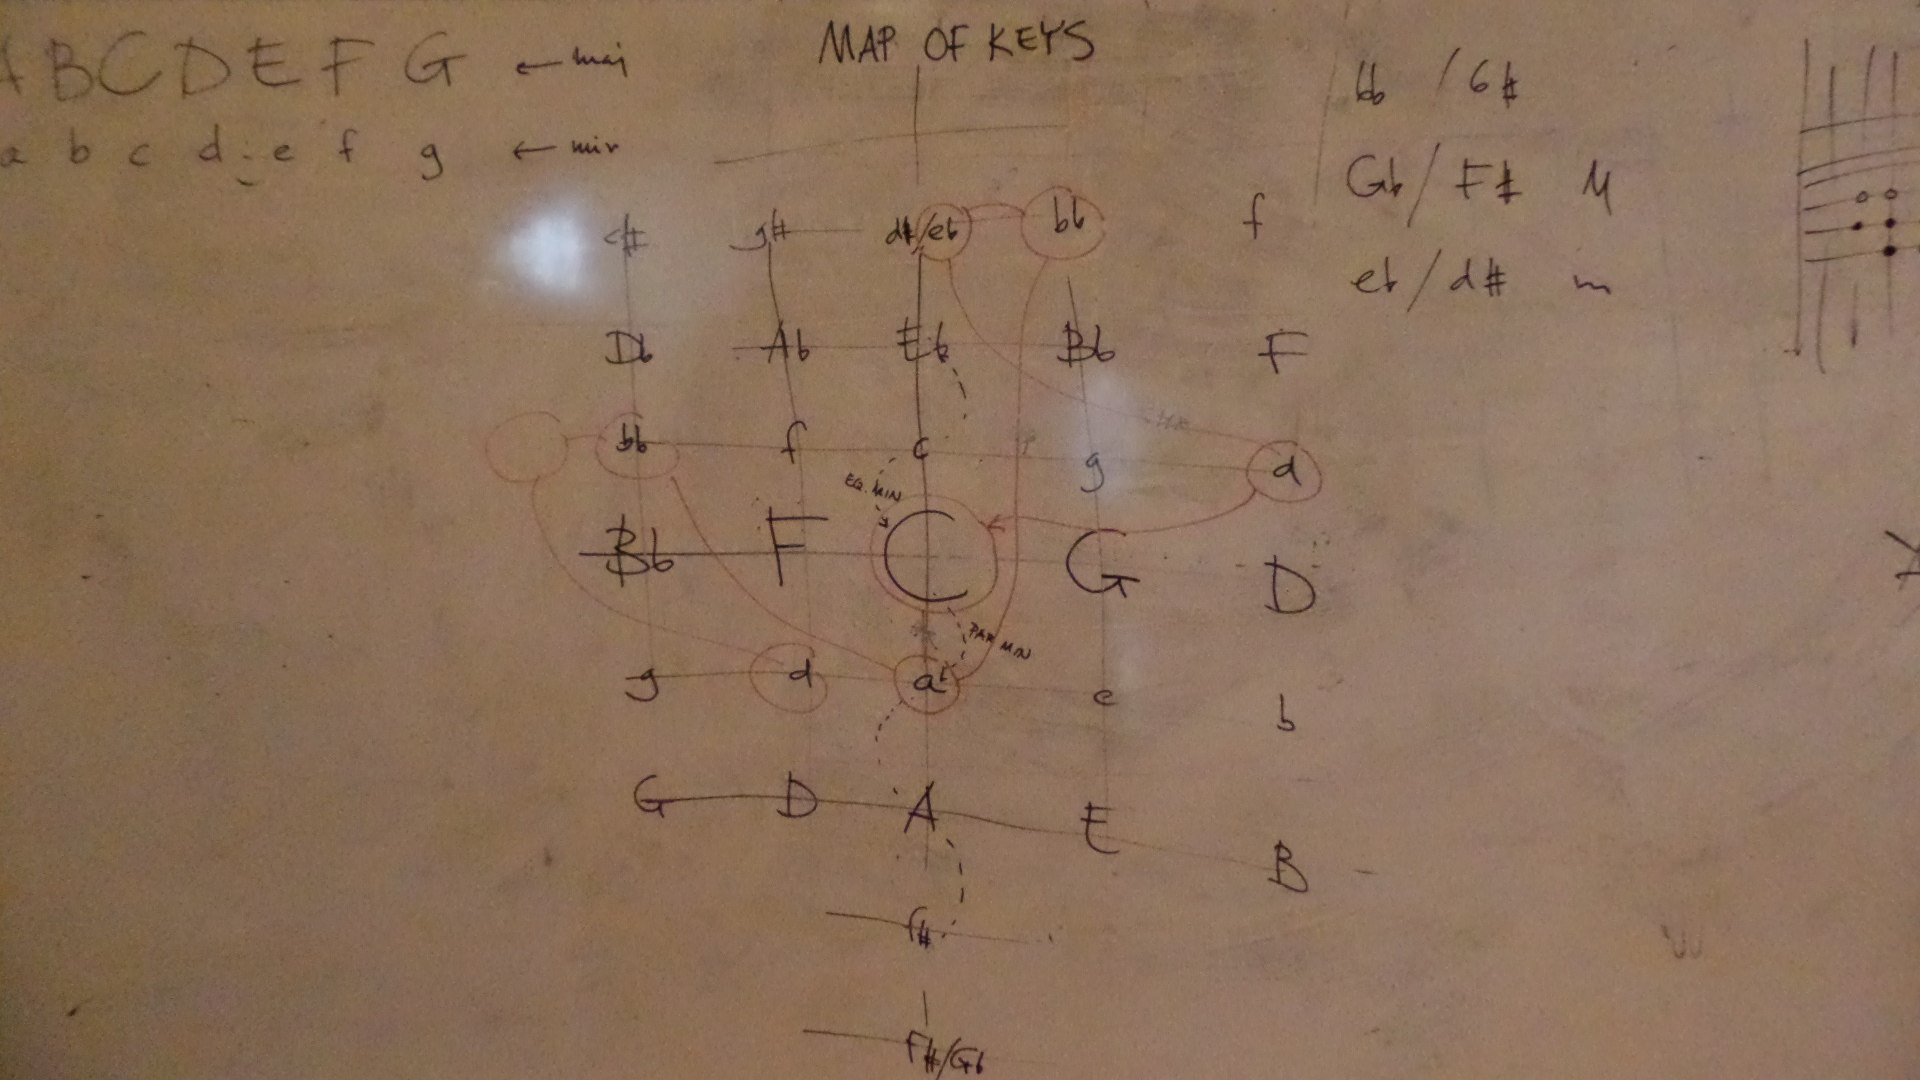 MAP OF KEYS
A B C D E F G ← maj
a b c d e f g ← min
bb / G#
Gb / F# M
eb / d# m
c# g# d#/eb bb f
Db Ab Eb Bb F
bb f c g d
EQ. MIN
Bb F C G D
PAR MIN
g d a e b
G D A E B
f#
F#/Gb